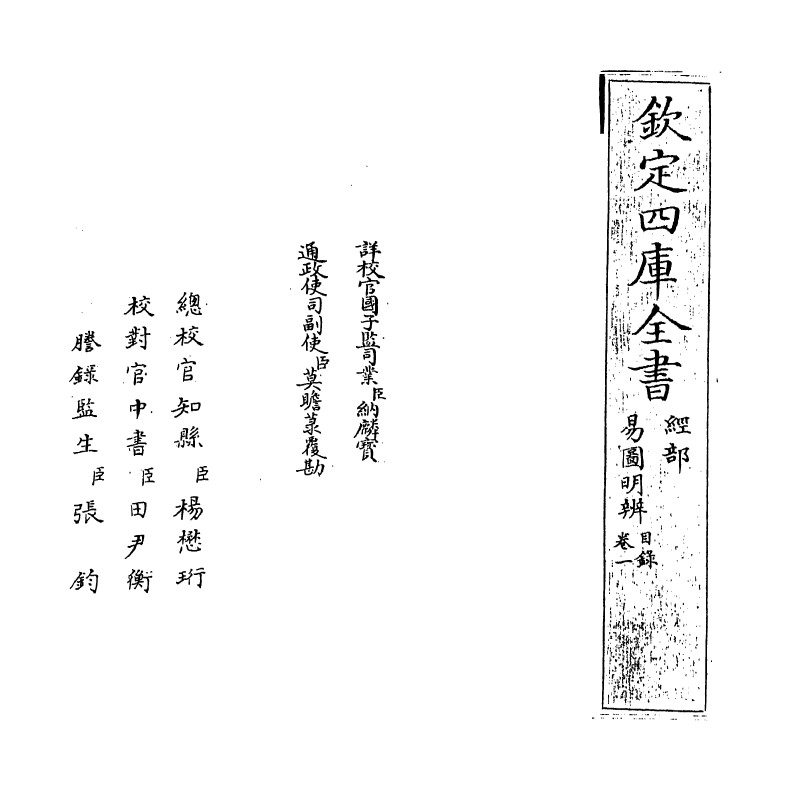 欽定四庫全書
經部
易圖明辨
目錄
卷一
詳校官國子監司業臣納麟寶
通政使司副使臣莫瞻菉覆勘
總校官知縣臣楊懋珩
校對官中書臣田尹衡
謄錄監生臣張鈞